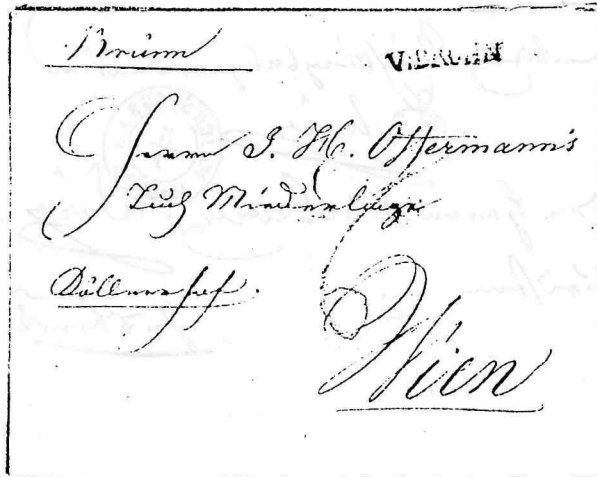 Brünn
V.BRÜNN
Herrn J. H. Offermann's
Tuch Niederlage
Wien